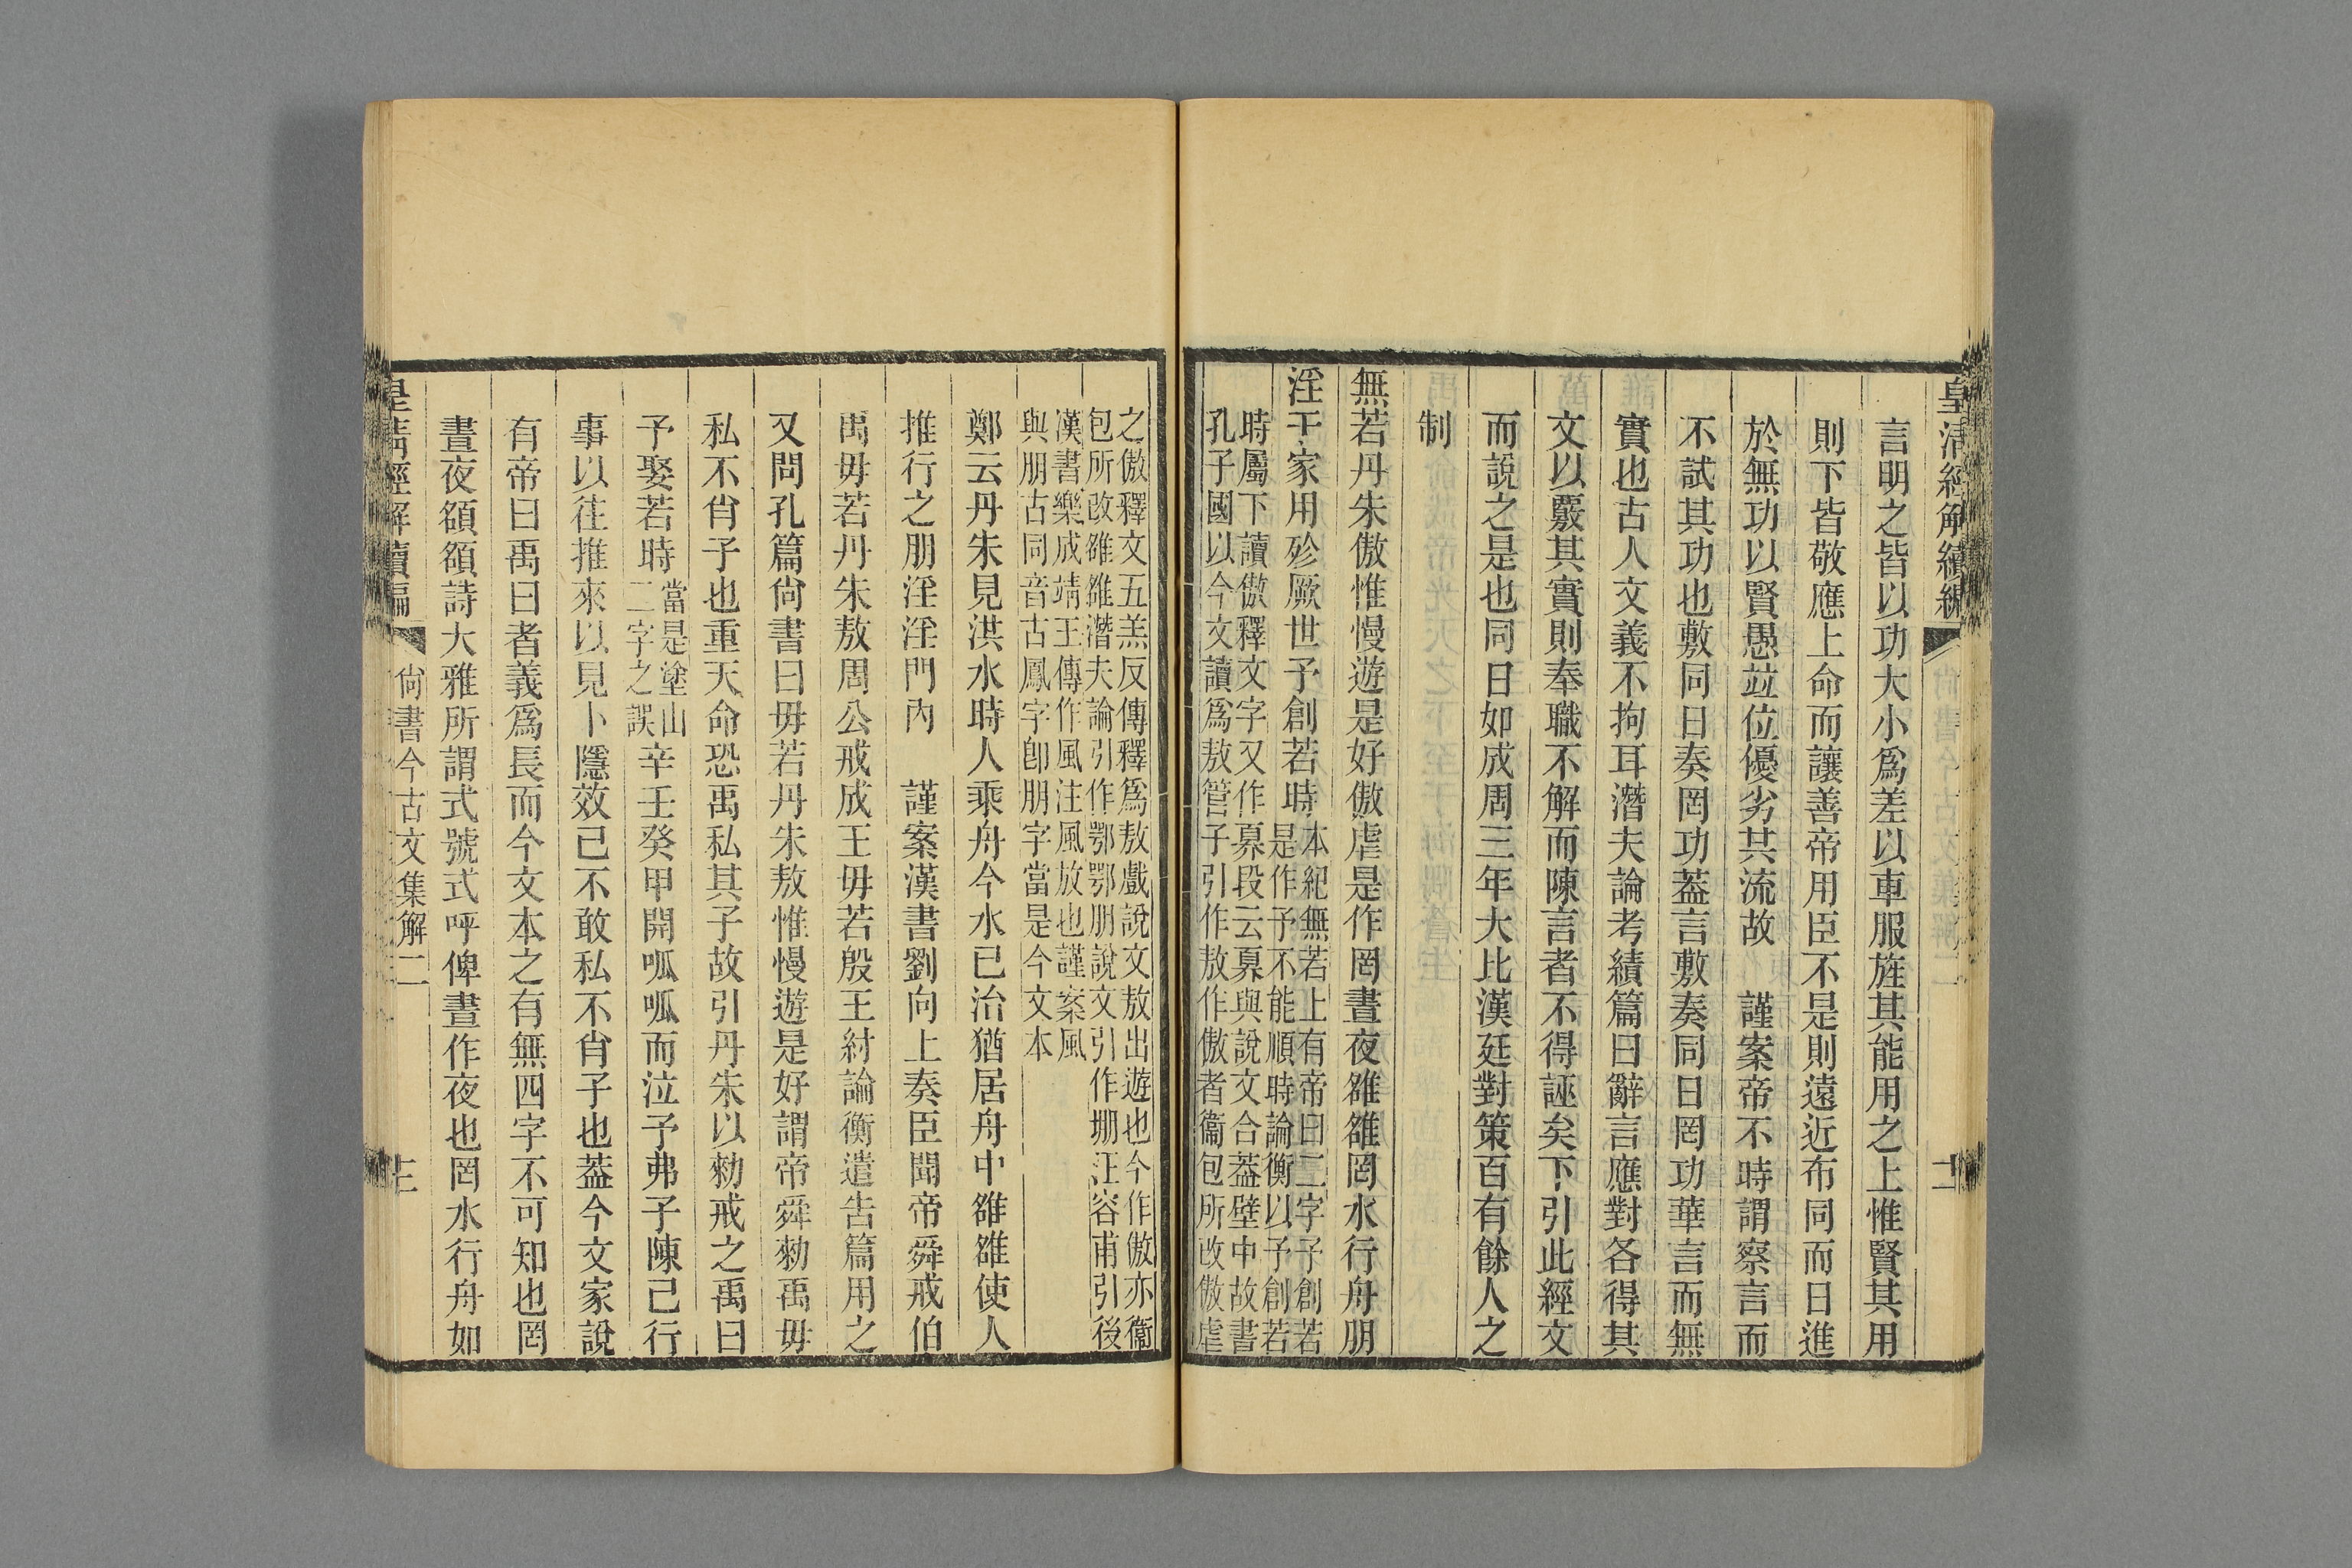 皇清經解續編
言明之皆以功大小爲差以車服旌其能用之上惟賢其用
則下皆敬應上命而讓善帝用臣不是則遠近布同而日進
於無功以賢愚竝位優劣其流故　謹案帝不時謂察言而
不試其功也敷同日奏罔功葢言敷奏同日罔功華言而無
實也古人文義不拘耳潛夫論考績篇曰辭言應對各得其
文以覈其實則奉職不解而陳言者不得誣矣下引此經文
而說之是也同日如成周三年大比漢廷對策百有餘人之
制
無若丹朱傲惟慢遊是好傲虐是作罔晝夜雒雒罔水行舟朋
淫于家用殄厥世予創若時
本紀無若上有帝曰二字予創若
是作予不能順時論衡以予創若
時屬下讀傲釋文字又作奡段云奡與說文合葢壁中故書
孔子國以今文讀爲敖管子引作敖作傲者衞包所改傲虐
之傲釋文五羔反傳釋爲敖戲說文敖出遊也今作傲亦衞
包所改雒雒潛夫論引作鄂鄂朋說文引作堋汪容甫引後
漢書樂成靖王傳作風注風放也謹案風
與朋古同音古鳳字卽朋字當是今文本
鄭云丹朱見洪水時人乘舟今水已治猶居舟中雒雒使人
推行之朋淫淫門內　謹案漢書劉向上奏臣聞帝舜戒伯
禹毋若丹朱敖周公戒成王毋若殷王紂論衡遣告篇用之
又問孔篇尙書曰毋若丹朱敖惟慢遊是好謂帝舜勑禹毋
私不肖子也重天命恐禹私其子故引丹朱以勑戒之禹曰
予娶若時
當是塗山
二字之誤
辛壬癸甲開呱呱而泣予弗子陳己行
事以往推來以見卜隱效己不敢私不肖子也葢今文家說
有帝曰禹曰者義爲長而今文本之有無四字不可知也罔
晝夜頟頟詩大雅所謂式號式呼俾晝作夜也罔水行舟如
皇清經解續編
尙書今古文集解二